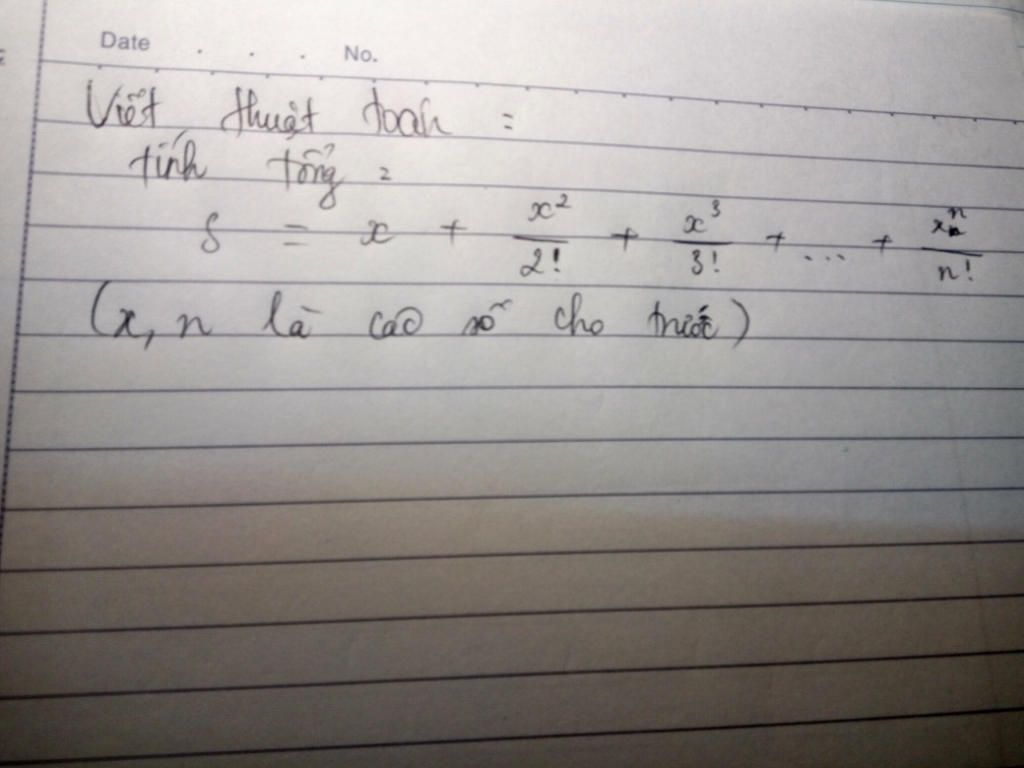 Date . . . No.
Viết thuật toán :
tính tổng :
S = x + x²/2! + x³/3! + ... + xⁿ/n!
(x, n là các số cho trước)